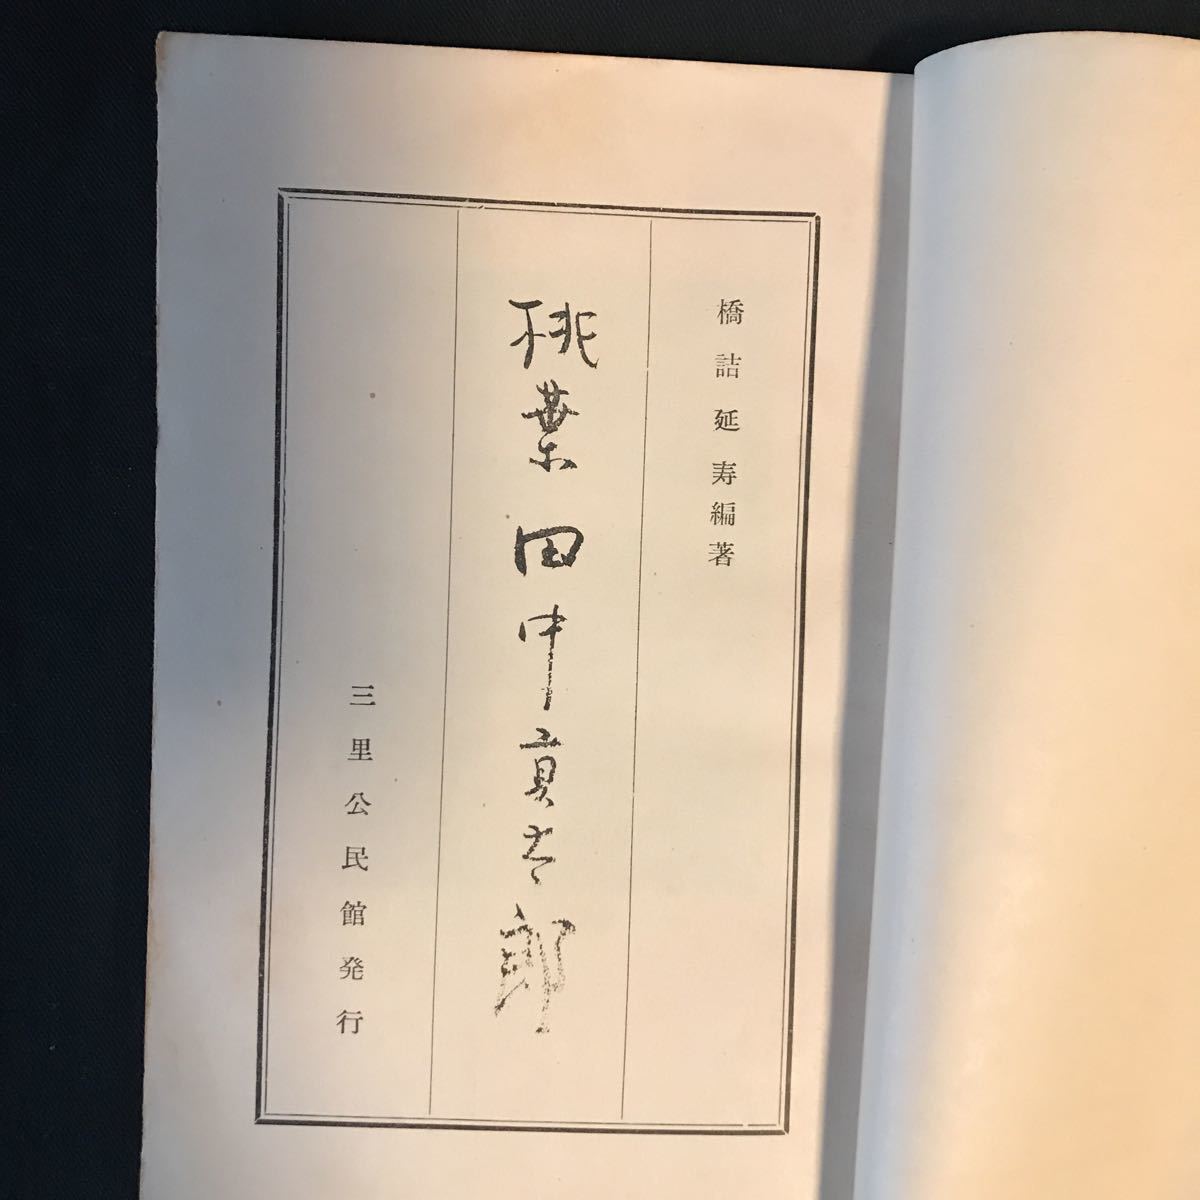 橋詰延寿編著
桃葉 田中貢太郎
三里公民館発行